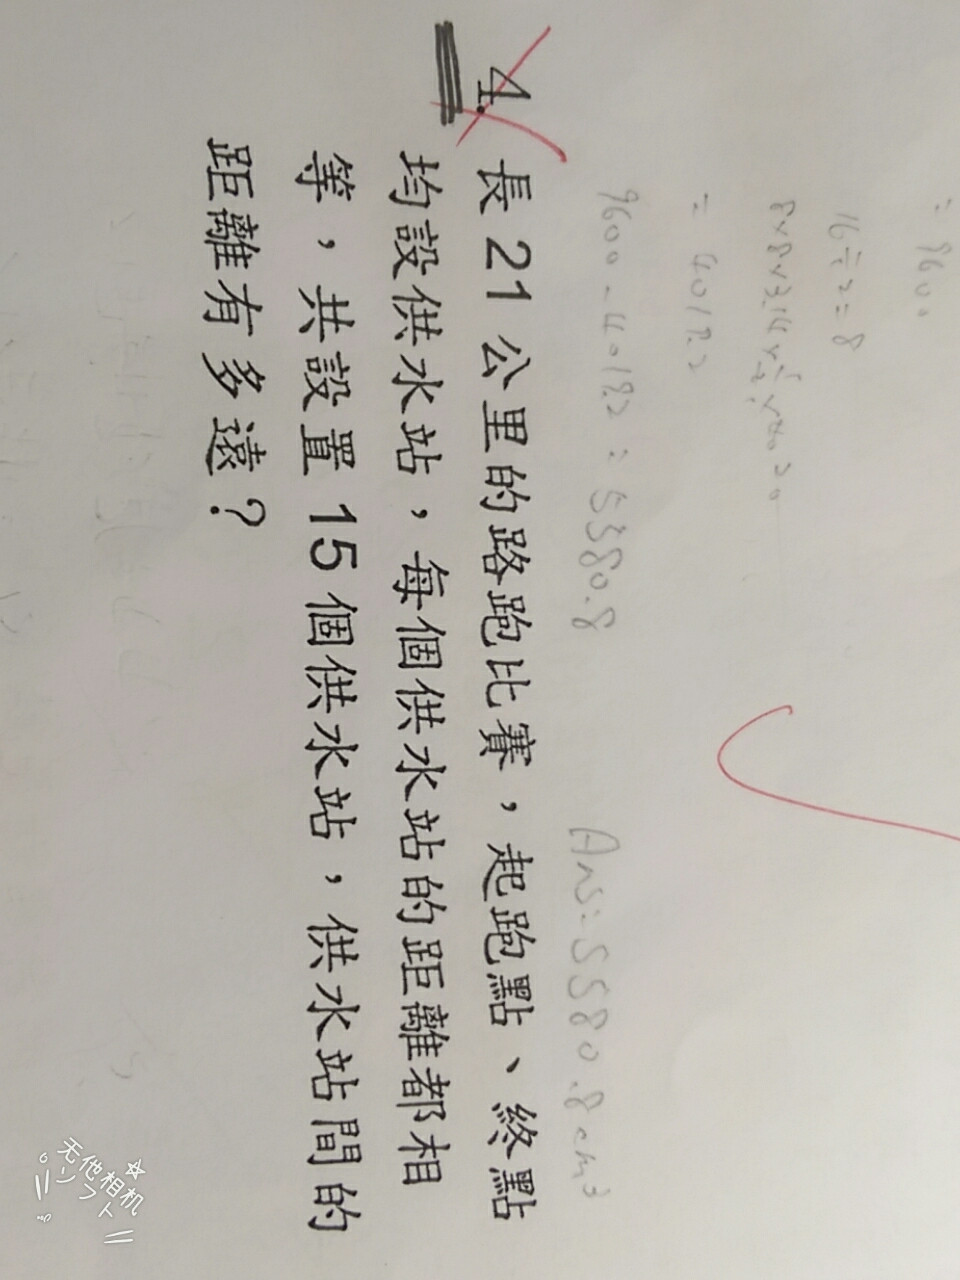 = 9600
16÷2=8
= 4019.2
9600-4019.2=5580.8
Ans:5580.8cm³
4. 長 21 公里的路跑比賽，起跑點、終點
均設供水站，每個供水站的距離都相
等，共設置 15 個供水站，供水站間的
距離有多遠？
无他相机